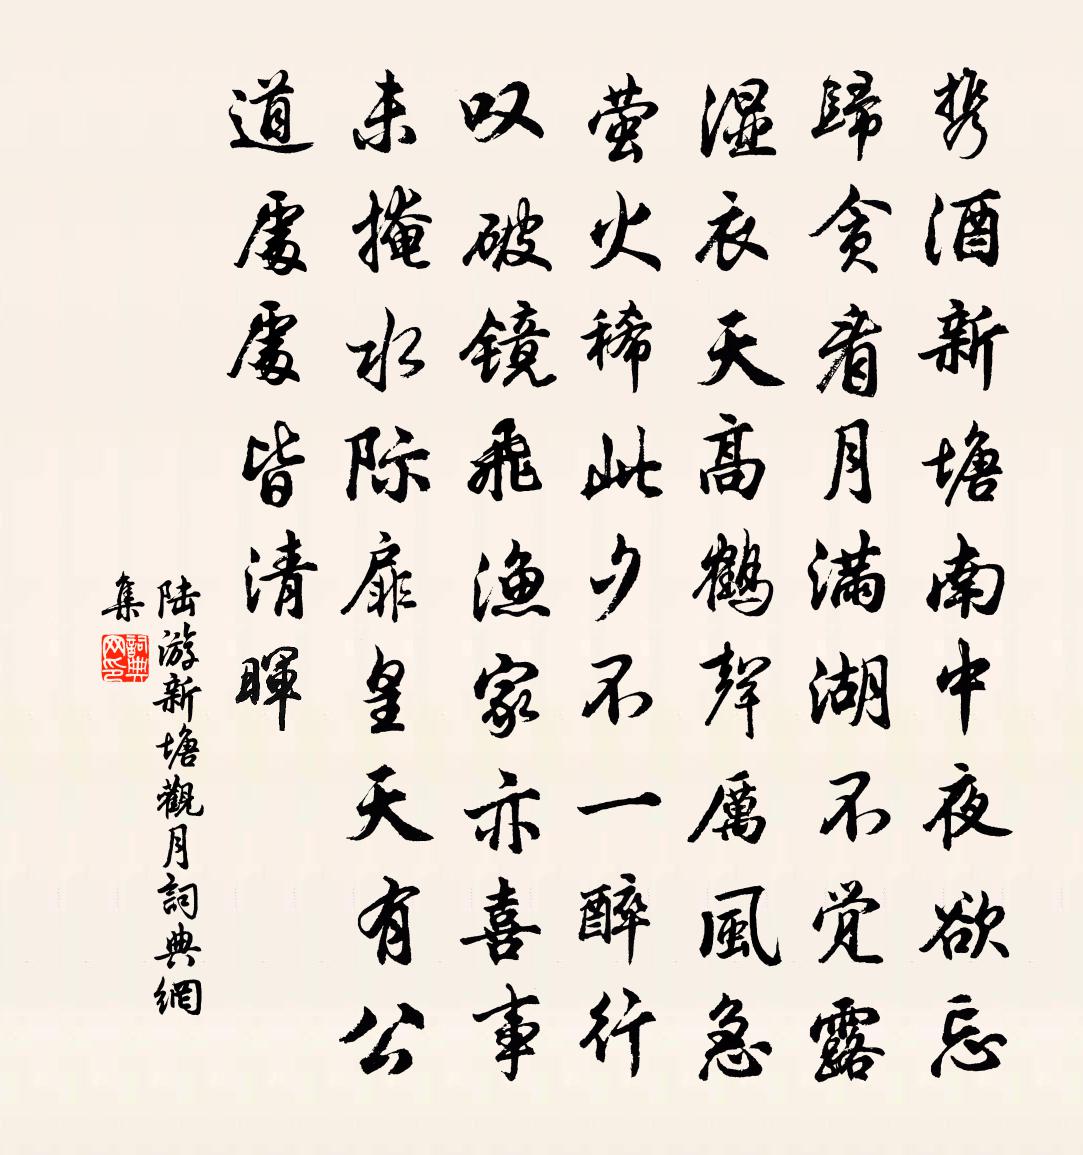 携酒新塘南中夜欲忘
歸贪看月满湖不觉露
湿衣天高鹤聲厲風急
萤火稀此夕不一醉行
叹破镜飛渔家亦喜事
未掩水际扉皇天有公
道處處皆清暉
陆游新塘觀月詞典網
集
詞典
网印